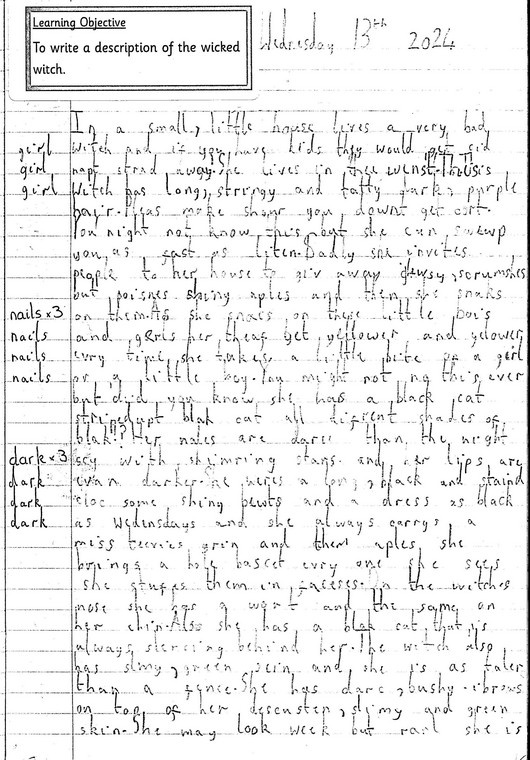 Learning Objective
To write a description of the wicked
witch.
Wednesday 13th 2024
In a small, little house lives a very bad
witch and if you have kids they would get eid
not strad away. She lives in thee This
witch has long, stringy and tatty dark, purple
hair. Pleas make shour you downt get cort.
You might not know this but she can swoup
you as fast as liten. Dadly she invites
people to her house to giv away scrumshes
but poisnes shiny aples and then she snaks
on them. As she snacs on these little bois
and gerls her theaf get yellower and yelower
evry time she takes a little bite of a gerl
or a little boy. You might not no this ever
but did you know she has a black cat
blak cat all difrent shades of
blak!? Her nales are darce than the night
scy with shimring stars and her lips are
evan darker. She weres a long, black and staind
cloc some shiny bewts and a dress as black
as Wedensdays and she always carrys a
miss teevies grin and them aples she
brings a hole bascet evry one she sees
she stuffs them in faceses. On the witches
nose she has a wort and the same on
her chin. Also she has a blak cat that is
always slercing behind her. The witch also
has slmy, green scin and she is as taler
than a fence. She has darc, bushy ibrows
on top of her descusten, slimy and green
skin. She may look week but rarl she is
girl
girl
girl
nails x3
nails
nails
nails
dark x3
dark
dark
dark